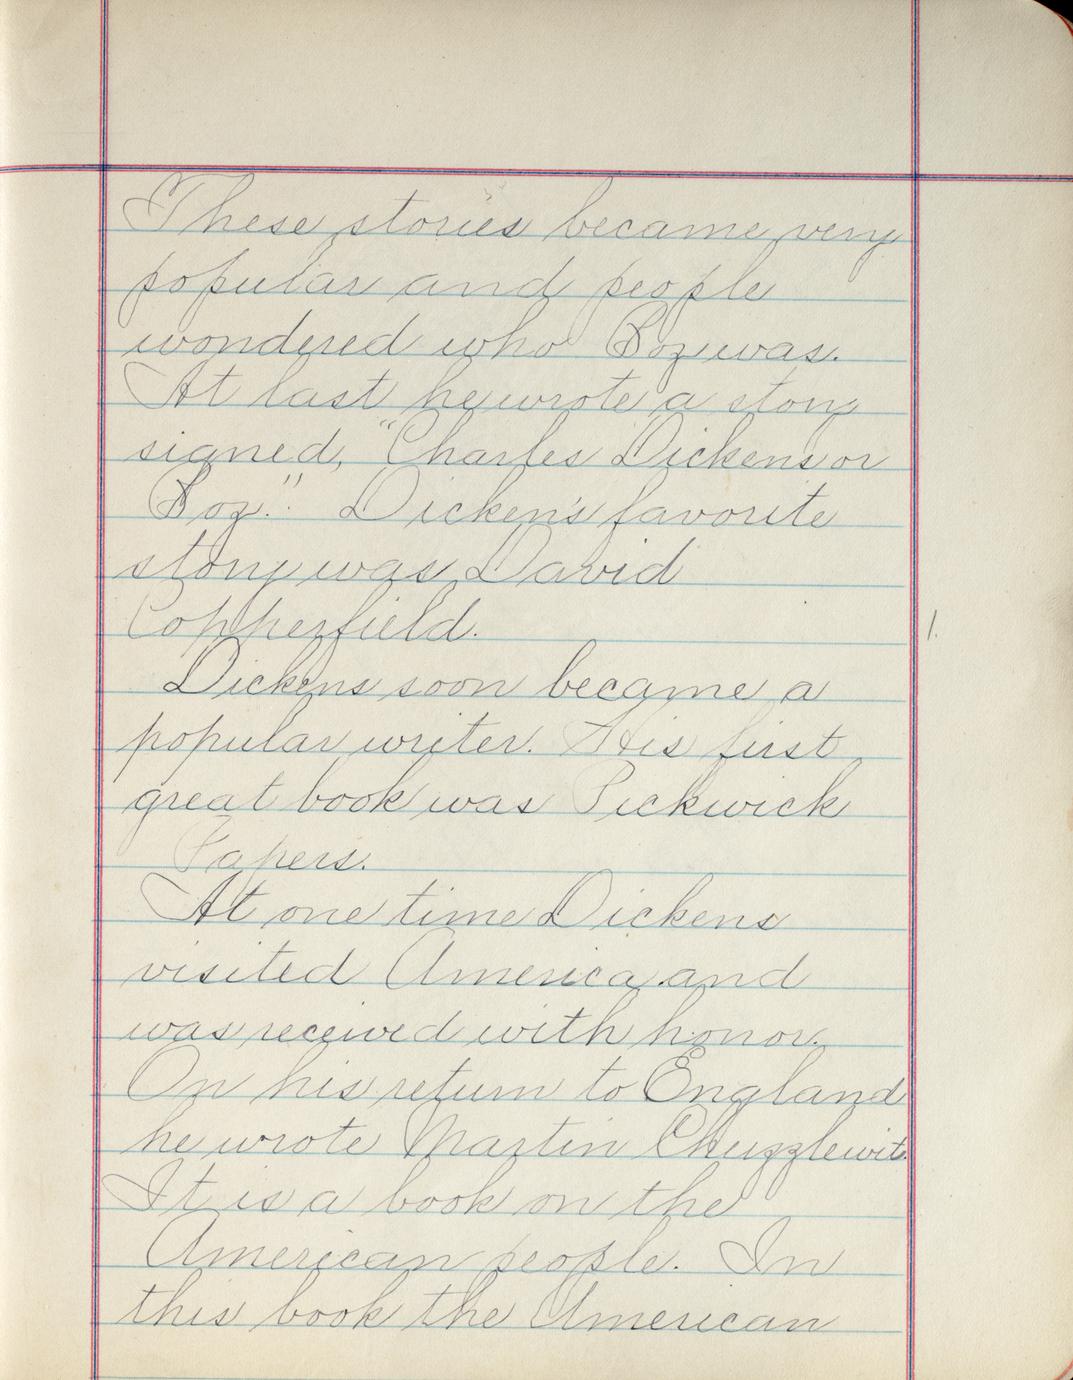 These stories became very
popular and people
wondered who Boz was.
At last he wrote a story
signed, "Charles Dickens or
Boz." Dicken's favorite
story was David
Copperfield.
1.
Dickens soon became a
popular writer. His first
great book was Pickwick
Papers.
At one time Dickens
visited America and
was received with honor.
On his return to England
he wrote Martin Chuzzlewit.
It is a book on the
American people. In
this book the American